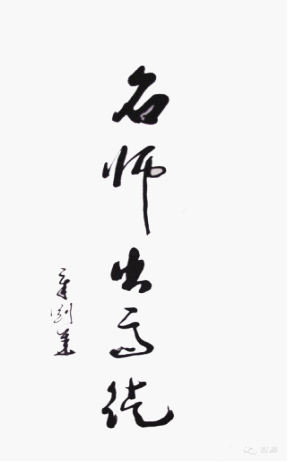 名师出高徒